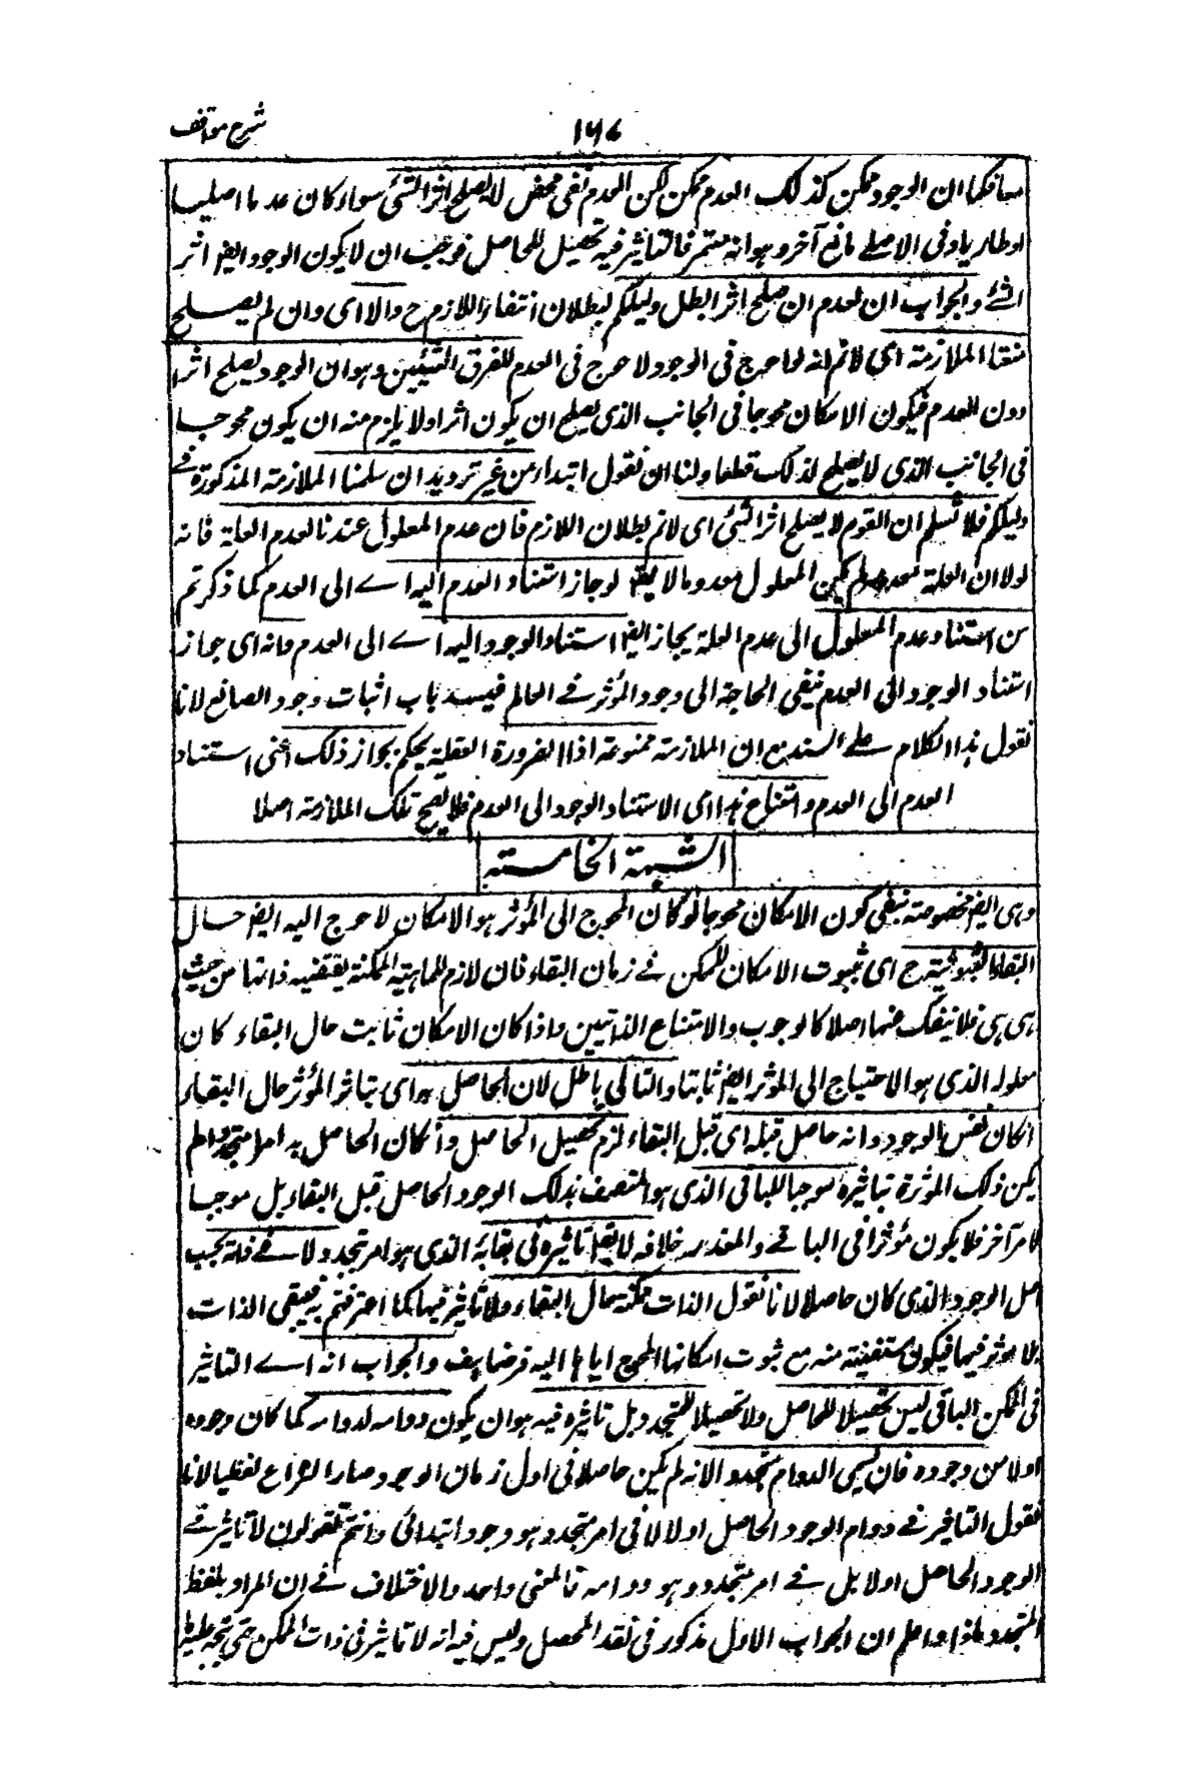 شرح مواقف
١٦٧
معا فكما ان الوجود ممكن كذلك العدم ممكن لكن العدم نفى محض لا يصلح اثرا لشئ سواء كان عدما اصليا
او طاريا وفى الاصلے مانع آخر وهو انه مستمر فالتاثير فيه تحصيل للحاصل فوجب ان لا يكون الوجود ايضا اثر
الشئے والجواب ان العدم ان صلح اثرا بطل دليلكم لبطلان انتفاء اللازم ح والا اى وان لم يصلح
منعنا الملازمة اى لا نم انه لو احوج فى الوجود لاحوج فى العدم للفرق البين وهو ان الوجود يصلح اثرا
دون العدم فيكون الامكان محوجا فى الجانب الذى يصلح ان يكون اثرا ولا يلزم منه ان يكون محوجا
فى الجانب الذى لا يصلح لذلك قطعا ولنا ان نقول ابتداء من غير ترديد ان سلمنا الملازمة المذكورة فے
دليلكم فلا نسلم ان العدم لا يصلح اثرا لشئ اى لا نم بطلان اللازم فان عدم المعلول عندنا لعدم العلة فانه
لولا ان العلة معدومة لم يكن المعلول معدوما لا يقال لو جاز استناد العدم اليه اے الى العدم كما ذكرتم
من استناد عدم المعلول الى عدم العلة لجاز ايضا استناد الوجود اليه اے الى العدم وانه اى جواز
استناد الوجود الى العدم ينفى الحاجة الى وجود المؤثر فے العالم فيسد باب اثبات وجود الصانع لانا
نقول هذا الكلام علے السند مع ان الملازمة ممنوعة اذ الضرورة العقلية يحكم بجواز ذلك اعنى استناد
العدم الى العدم وامتناع هذا اى الاستناد الوجود الى العدم فلا يصح تلك الملازمة اصلا
الشبهة الخامسة
وهى ايضا مخصوصة بنفى كون الامكان محوجا لو كان المحوج الى المؤثر هو الامكان لاحوج اليه ايضا حال
البقاء لثبوته ح اى ثبوت الامكان للممكن فے زمان البقاء فانه لازم للماهية الممكنة يقتضيه ذاتها من حيث
هى هى فلا ينفك عنها اصلا كالوجوب والامتناع الذاتيين واذا كان الامكان ثابت حال البقاء كان
معلوله الذى هو الاحتياج الى المؤثر ايضا ثابتا والتالى باطل لان الحاصل به اى بتاثر المؤثر حال البقاء
ان كان نفس الوجود وانه حاصل قبله اى قبل البقاء لزم تحصيل الحاصل وان كان الحاصل به امرا متجددا لم
يكن ذلك المؤثر بتاثيره موجبا للباقى الذى هو المتصف بذلك الوجود الحاصل قبل البقاء بل موجبا
لامر آخر فلا يكون مؤثرا فى الباقے والمقدر خلافه لا يقال تاثيره فى بقائه الذى هو امر متجدد ولا فے
اصل الوجود الذى كان حاصلا لانا نقول الذات ممكنة حال البقاء ولا تاثير فيها كما اعترفتم به فيبقى الذات
لا مؤثر فيها فيكون مستغنية منه مع ثبوت امكانها المحوج اياها اليه فرضا هف والجواب انه اے التاثير
فى الممكن الباقى ليس تحصيلا للحاصل ولا تحصيلا للمتجدد بل تاثيره فيه هو ان يكون دوامه لدوامه كما كان وجوده
اولا من وجوده فان سمى الدوام متجددا لانه لم يكن حاصلا فى اول زمان الوجود صار النزاع لفظيا لانا
نقول التاثير فے دوام الوجود الحاصل اولا لا فى امر متجدد هو وجود ابتدائى وانتم تقولون لا تاثير فے
الوجود الحاصل اولا بل فے امر متجدد وهو دوامه فالمعنى واحد والاختلاف فے ان المراد بلفظ
المتجدد ماذا واعلم ان الجواب الاول مذكور فى نقد المحصل وليس فيه انه لا تاثير فى ذات الممكن حتى يتجه عليه